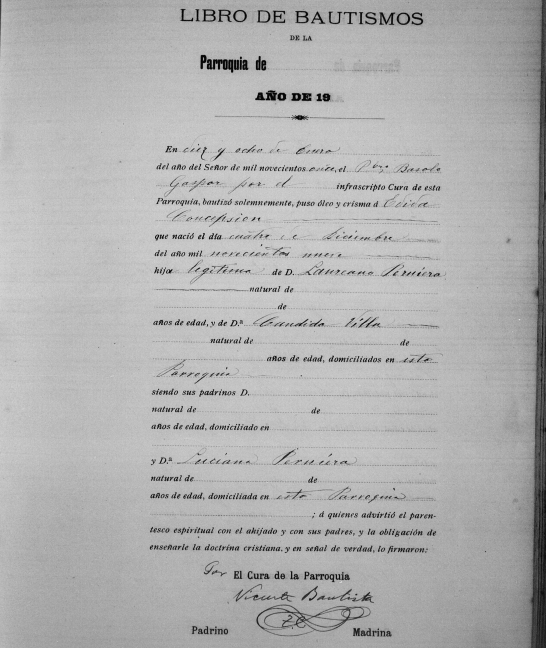 LIBRO DE BAUTISMOS
DE LA
Parroquia de
AÑO DE 19
En diez y ocho de Enero
del año del Señor de mil novecientos once, el Pbro
Gaspar por el infrascripto Cura de esta
Parroquia, bautizó solemnemente, puso óleo y crisma á
Concepsion
que nació el día cuatro de Diciembre
del año mil novecientos nueve
hija legitima de D. Laureano
natural de
de
años de edad, y de D.ª Candida Villa
natural de de
años de edad, domiciliados en esta
Parroquia
siendo sus padrinos D.
natural de de
años de edad, domiciliado en
y D.ª Luciana
natural de de
años de edad, domiciliada en esta Parroquia
; á quienes advirtió el paren-
tesco espiritual con el ahijado y con sus padres, y la obligación de
enseñarle la doctrina cristiana, y en señal de verdad, lo firmaron:
Por El Cura de la Parroquia
Vicente Bautista
Padrino Madrina